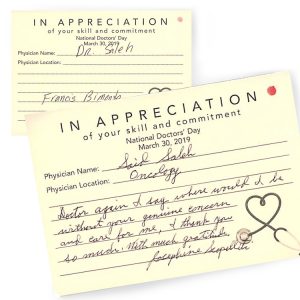 IN APPRECIATION
of your skill and commitment
National Doctors' Day
March 30, 2019
Physician Name: Dr. Saleh
Physician Location:
Francis
IN APPRECIATION
of your skill and commitment
National Doctors' Day
March 30, 2019
Physician Name: Said Saleh
Physician Location: Oncology
Doctor again I say, where would I be
without your genuine concern
and care for me, I thank you
so much! With much gratitude,
Josephine